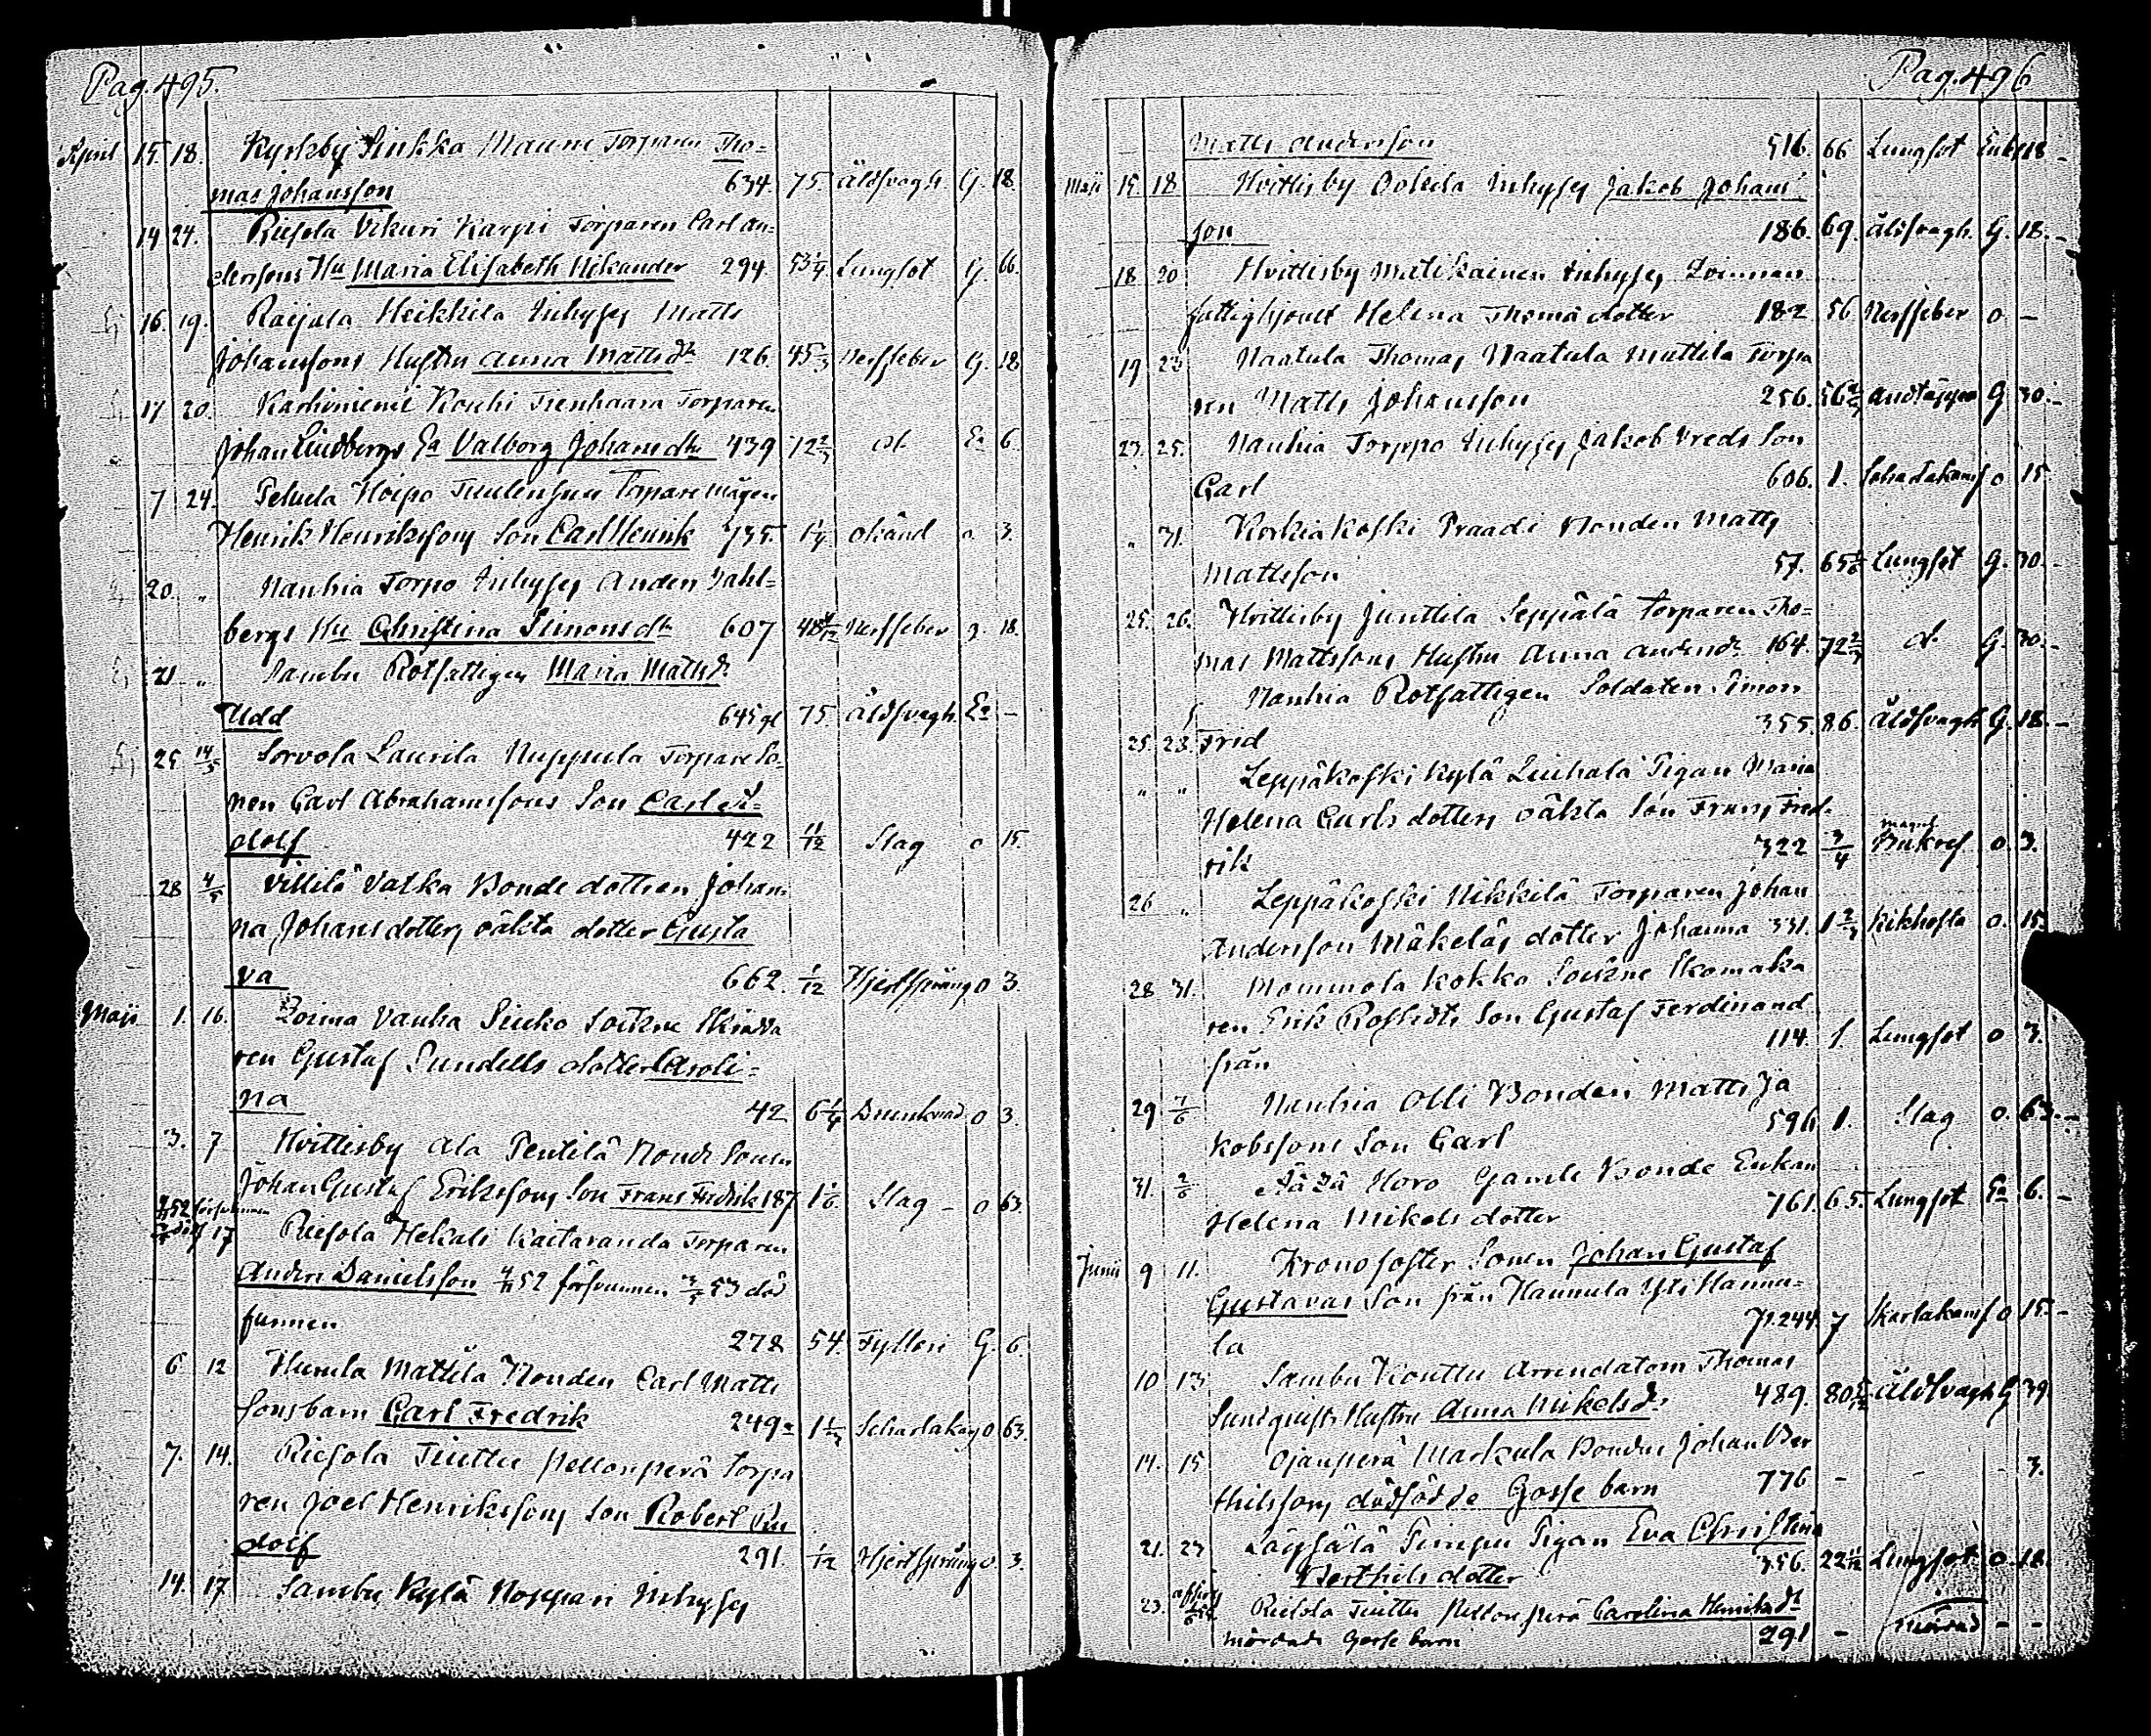 Pag. 495.
April 15. 18. Kyrkby Sinkka Mauno Torparen Tho=
mas Johansson 634. 75. Åldsvagh. G. 18.
14 24. Riesola Vikuri Karpi Torparen Carl An=
derssons Hu Maria Elisabeth Nikander 294 53 1/4 Lungsot G. 66.
16. 19. Raijala Heikkila Inhyses Matts
Johanssons Hustru Anna Mattsdr 126. 45 Nerffeber G. 18
17 20. Karhiniemi Kouhi Torparen
Johan Lindbergs Ea Valborg Johansdr 439 72 2/3 d:o Ea 6.
7 24. Torpare mågen
Henrik Henrikssons Son Carl Henrik 735. 1/4 okänd o. 3.
20. " Nanhia Torpo Inhyses Anders Dahl=
bergs Hu Christina Simonsdr 607 Nerffeber g. 18.
21 " Sambu Rotfattigen Maria Mattsdr
Udd 645 75 Åldsvagh. Ea –
25 14/5 Sorvola Laurila Nuppula Torpare So=
nen Carl Abrahamssons Son Carl A=
dolf 422 11/12 Slag o 15.
28 4/5 Villilä Vatka Bonde dottren Johan=
na Johansdotters oäkta dotter Gusta
va 662. 1/12 Hjertsprång o 3.
Maji 1. 16. Loima Vanha Sinko Sockne Skrädda
ren Gustaf Sundells dotter Caroli=
na 42 6 1/4 Drunknad o 3.
3. 7 Hvittisby Ala Pentilä Bonde Sonen
Johan Gustaf Erikssons Son Frans Fredrik 187 1 1/6 Slag – o 63.
17 Riesola Hekali Kaitaranda Torparen
Anders Danielsson 4/11 52 försvunnen 3/5 53 död
funnen 278 54. Fylleri G. 6.
6 12 Humla Mattila Bonden Carl Matts
Sons barn Carl Fredrik 249 Scharlakans o 63.
7. 14. Riesola Tuittu Pellonperä Torpa
ren Joel Henrikssons Son Robert Ru
dolf 291. 1/12 Hjertsprång o. 3.
14. 17 Sambu Kylä Noppari Inhyses
Pag. 496
Matts Andersson 516. 66 Lungsot Enkl 18 –
Maji 15 18 Hvittisby Inhyses Jakob Johans
son 186. 69. Åldsvagh. G. 18. –
18 20 Hvittisby Matikainen Inhyses
fattighjonet Helena Thomä dotter 182 56 Nerffeber o –
19 23 Naatula Thomas Naatula Mattila Torpa
ren Matts Johansson 256. 56 2/3 Andtäppa G 30. –
23. 25. Nanhia Torppo Inhyses Jakob Vreds Son
Carl 606. 1. Scharlakans o 15.
" 31. Korkiakoski Praadi Bonden Matts
Mattsson 57. 65 Lungsot G. 30. –
25. 26. Hvittisby Junttila Seppälä Torparen Tho=
mas Mattssons Hustru Anna Andersdr 164. 72 2/3 d:o G. 30. –
Nanhia Rotfattigen Soldaten Simon
25. 28. Frid 355. 86. Åldsvagh. G. 18. –
" " Leppäkoski Kylä Pigan Maria
Helena Carls dotters oäkta Son Frans Fred=
rik 322 3/4 o. 3.
26 " Leppäkoski Nikkilä Torparen Johan
Andersson Mäkeläs dotter Johanna 331. 1 2/3 Kikhosta o. 15.
28 31. Mommola Kokko Sockne Skomaka
ren Erik Son Gustaf Ferdinand
från 114. 1. Lungsot o 3.
29 7/6 Nanhia Olli Bonden Matts Ja
kobssons Son Carl 596 1. Slag o. 63. –
31. 2/6 Horo Gamle Bonde Enkan
Helena Mikels dotter 761. 65. Lungsot Ea 6. –
Junii 9 11. Kronofoster Sonen Johan Gustaf
Gustavas Son från Hannula Yli Hannu=
la 244 7 Skarlakansf o 15. –
10 13 Sambu Kouttu Arrendatorn Thomas
Sundqvists Hustru Anna Mikelsdr 489. 80 Åldsvagh G 39.
14. 15 Ojanperä Markula Bonden Johan Ber
thilssons dödfödde Gosse barn 776 – – – 3.
21. 23 Pigan Eva Christina
Berthils dotter 356. 22 11/12 Lungsot o. 18.
23. Riesola Tuittu Pellonperä Carolina Henriksdr
mördade Gosse barn 291 – mördad – –